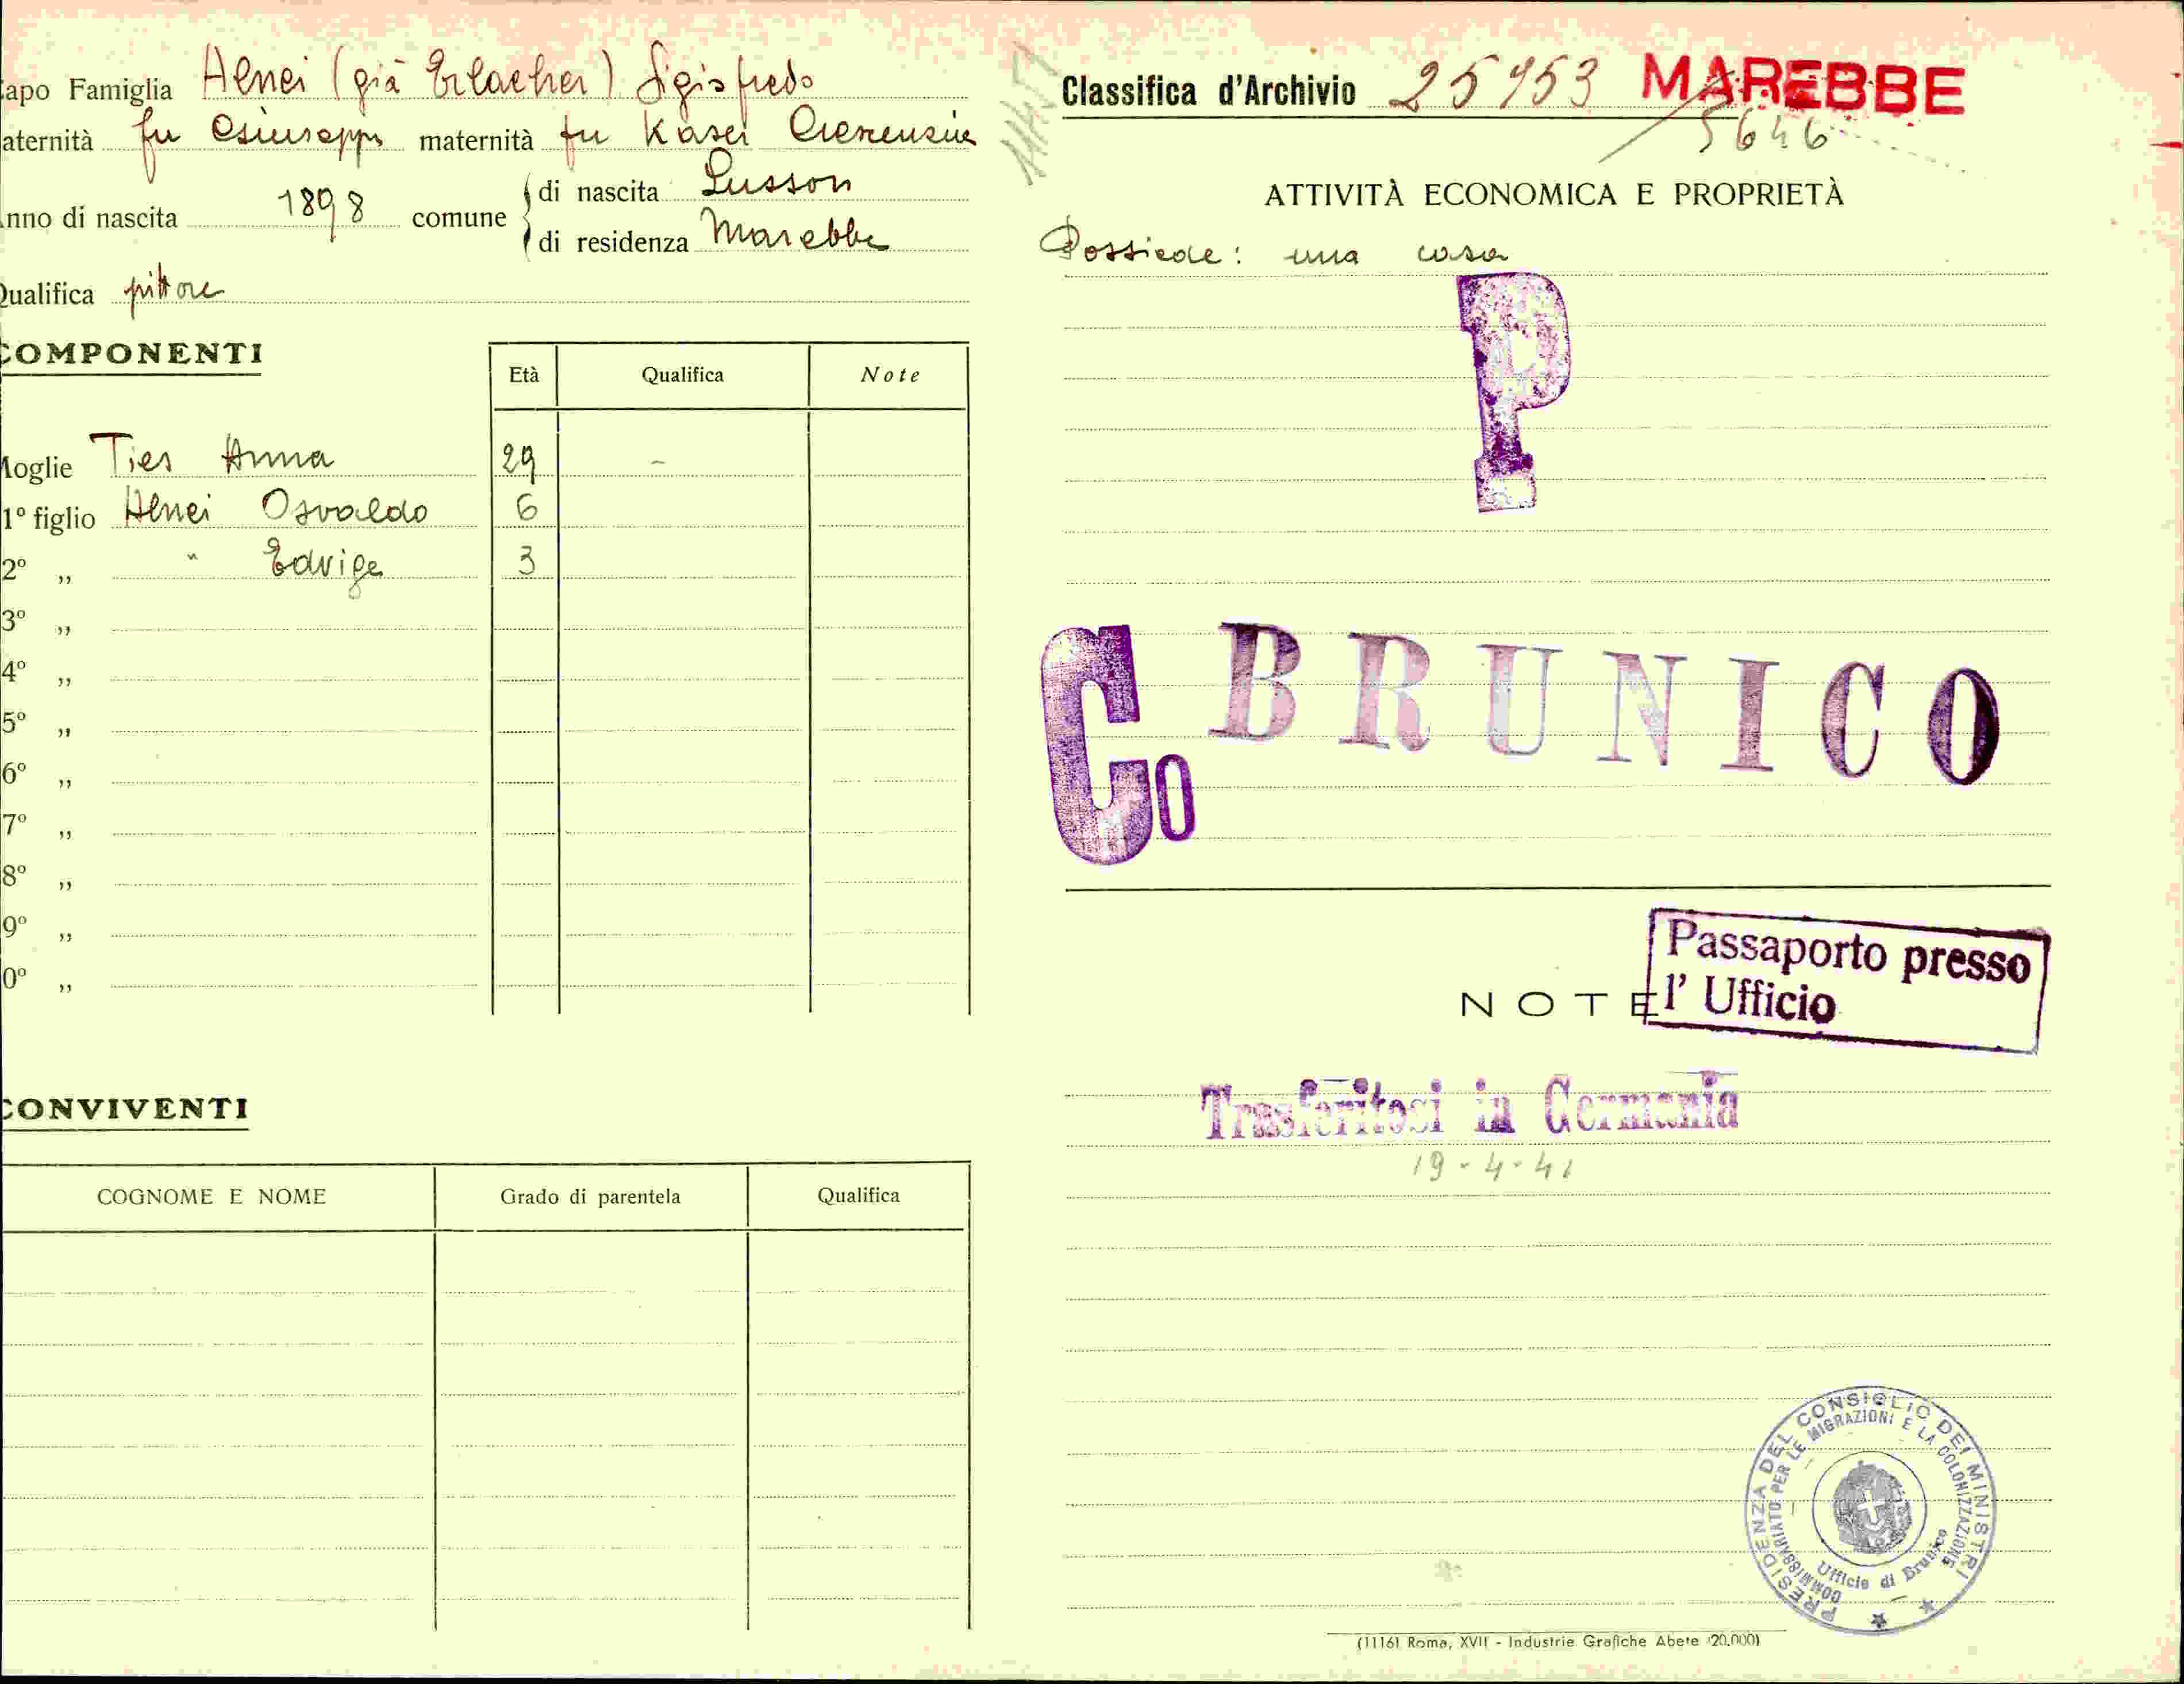 apo Famiglia Alnei (già Erlacher) Sigisfredo
aternità fu Giuseppe maternità fu Kaser
nno di nascita 1898 comune di nascita Lusson
di residenza Marebbe
Qualifica pittore
COMPONENTI
Età Qualifica Note
Moglie Ties Anna 29 –
1º figlio Alnei Osvaldo 6
2º „ " Edvige 3
3º „
4º „
5º „
6º „
7º „
8º „
9º „
0º „
CONVIVENTI
COGNOME E NOME Grado di parentela Qualifica
Classifica d'Archivio 25953 MAREBBE
5646
ATTIVITÀ ECONOMICA E PROPRIETÀ
Possiede: una casa
P
Co BRUNICO
Passaporto presso
l' Ufficio
NOTE
Trasferitosi in Germania
19-4-41
PRESIDENZA DEL CONSIGLIO DEI MINISTRI
COMMISSARIATO PER LE MIGRAZIONI E LA COLONIZZAZIONE
Ufficio di Brunico
(1116) Roma, XVII - Industrie Grafiche Abete (20.000)